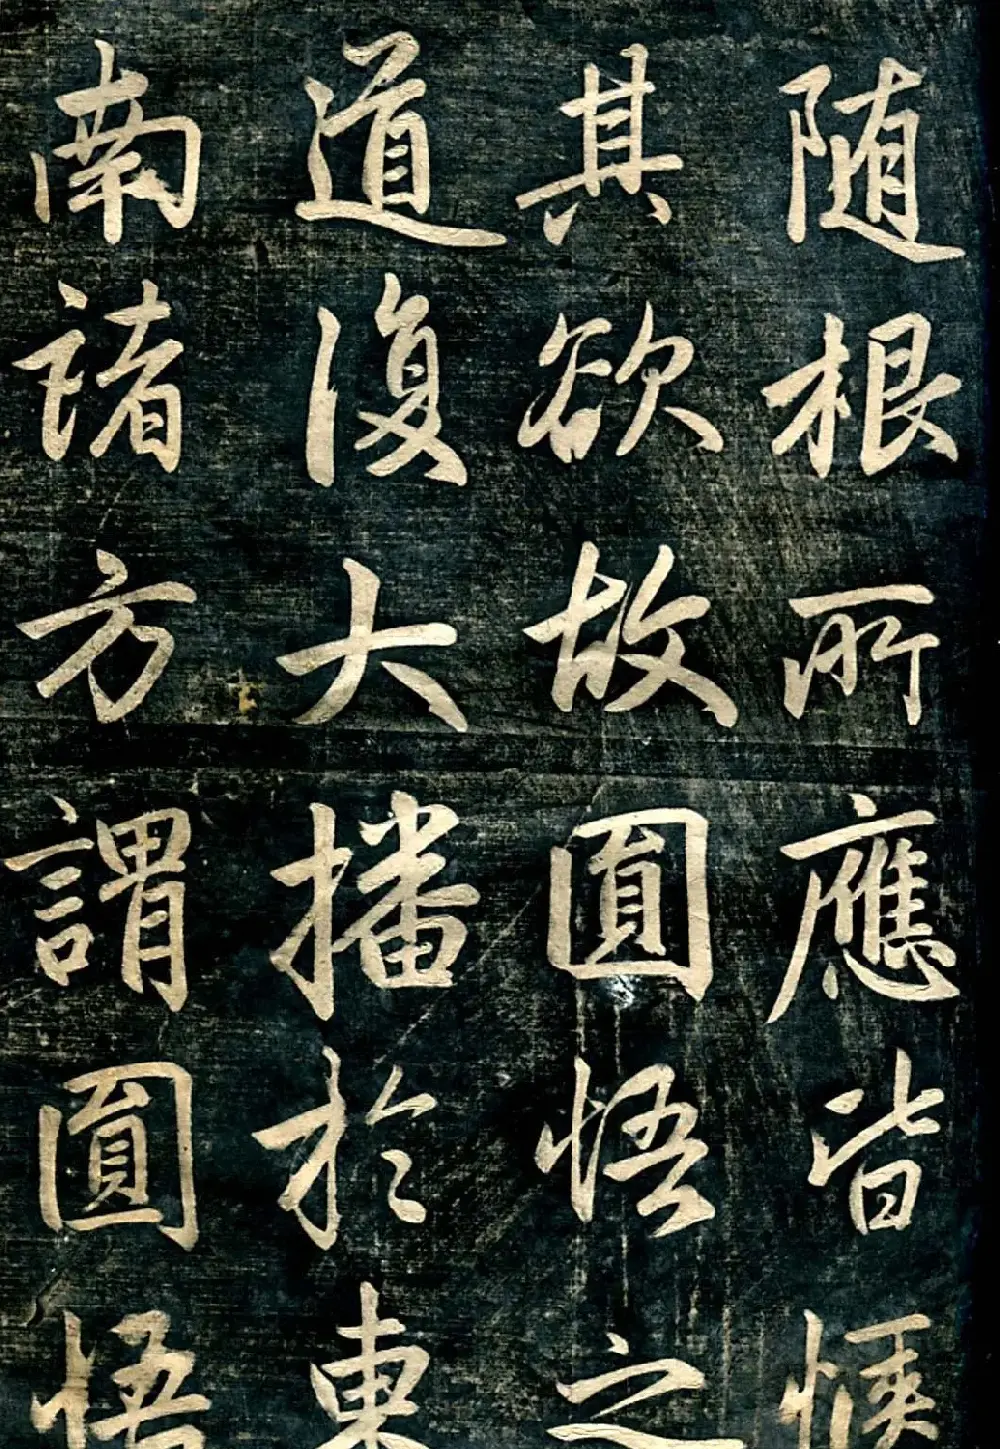 随根所應皆愜
其欲故圓悟之
道復大播於東
南諸方謂圓悟